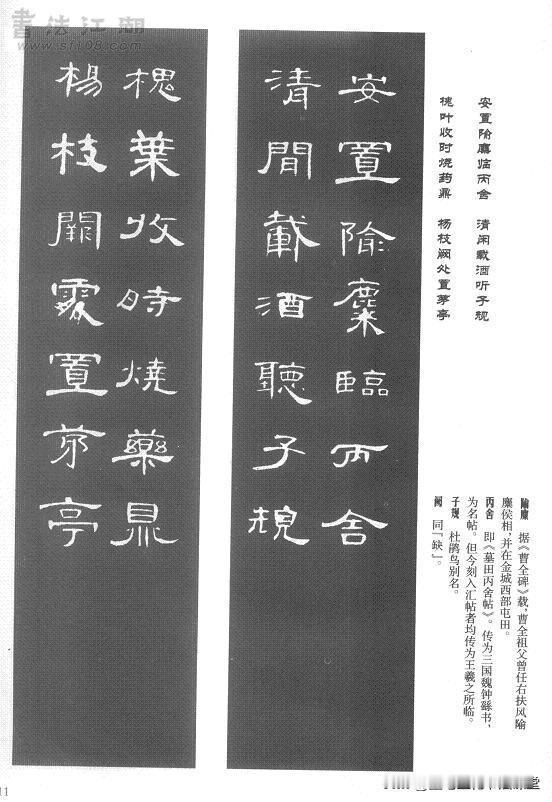 書法江湖
www.sf108.com
安置隃麋臨丙舍
清閒載酒聽子規
槐葉收時燒藥鼎
楊枝闕處置茅亭
安置隃麋临丙舍 清闲载酒听子规
槐叶收时烧药鼎 杨枝阙处置茅亭
隃麋 据《曹全碑》载,曹全祖父曾任右扶风隃
麋侯相,并在金城西部屯田。
丙舍 即《墓田丙舍帖》。传为三国魏钟繇书,
为名帖。但今刻入汇帖者均传为王羲之所临。
子规 杜鹃鸟别名。
阙 同『缺』。
11